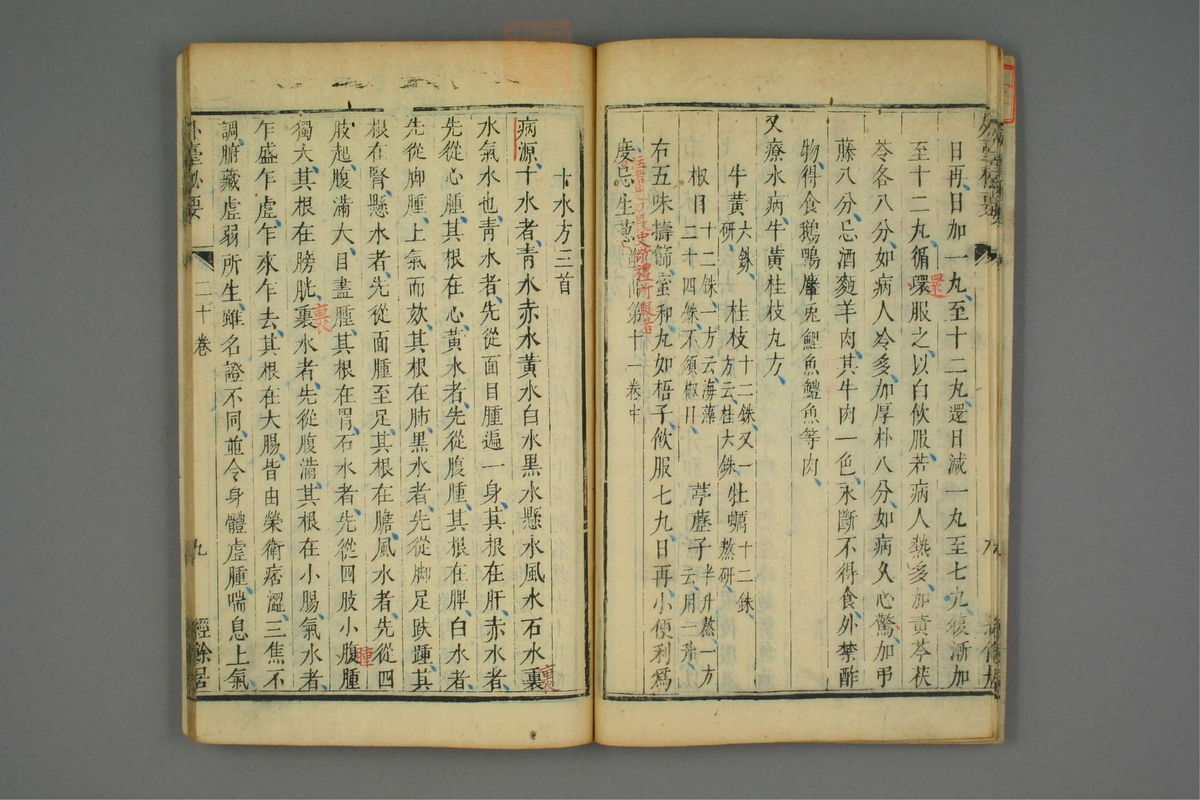 日再日加一丸、至十二丸、還日減一丸至七丸、復漸加
至十二丸、循環服之以白飲服、若病人熱多、加黃芩茯
苓各八分、如病人冷多、加厚朴八分、如病久心驚、加弔
藤八分、忌酒麵羊肉、其牛肉一色、永斷不得食、外禁酢
物、得食鵝鴨麞兎鯉魚鱧魚等肉、
又療水病牛黃桂枝丸方、
牛黃六銖研、桂枝十二銖又一方云桂大銖牡蠣十二銖熬研、
椒目二十四銖不須椒目、十二銖一方云海藻葶藶子半升熬一方云用一升、
右五味擣篩蜜和丸如梧子飲服七丸、日再小便利爲
度、忌生蔥第十一卷中
十水方三首
病源十水者、青水赤水黃水白水黑水懸水風水石水裏
水氣水也、青水者、先從面目腫遍一身、其根在肝、赤水者、
先從心腫、其根在心、黃水者、先從腹腫、其根在脾、白水者、
先從脚腫、上氣而欬、其根在肺、黑水者、先從脚足趺踵、其
根在腎、懸水者、先從面腫至足、其根在膽、風水者、先從四
肢起、腹滿大、目盡腫、其根在胃、石水者、先從四肢小腹腫
獨大、其根在膀胱、裏水者、先從腹滿、其根在小腸、氣水者、
乍盛乍虛、乍來乍去、其根在大腸、皆由榮衛痞澀、三焦不
調、腑藏虛弱所生、雖名證不同、並令身體虛腫喘息上氣
外臺秘要
二十卷
九
經餘居